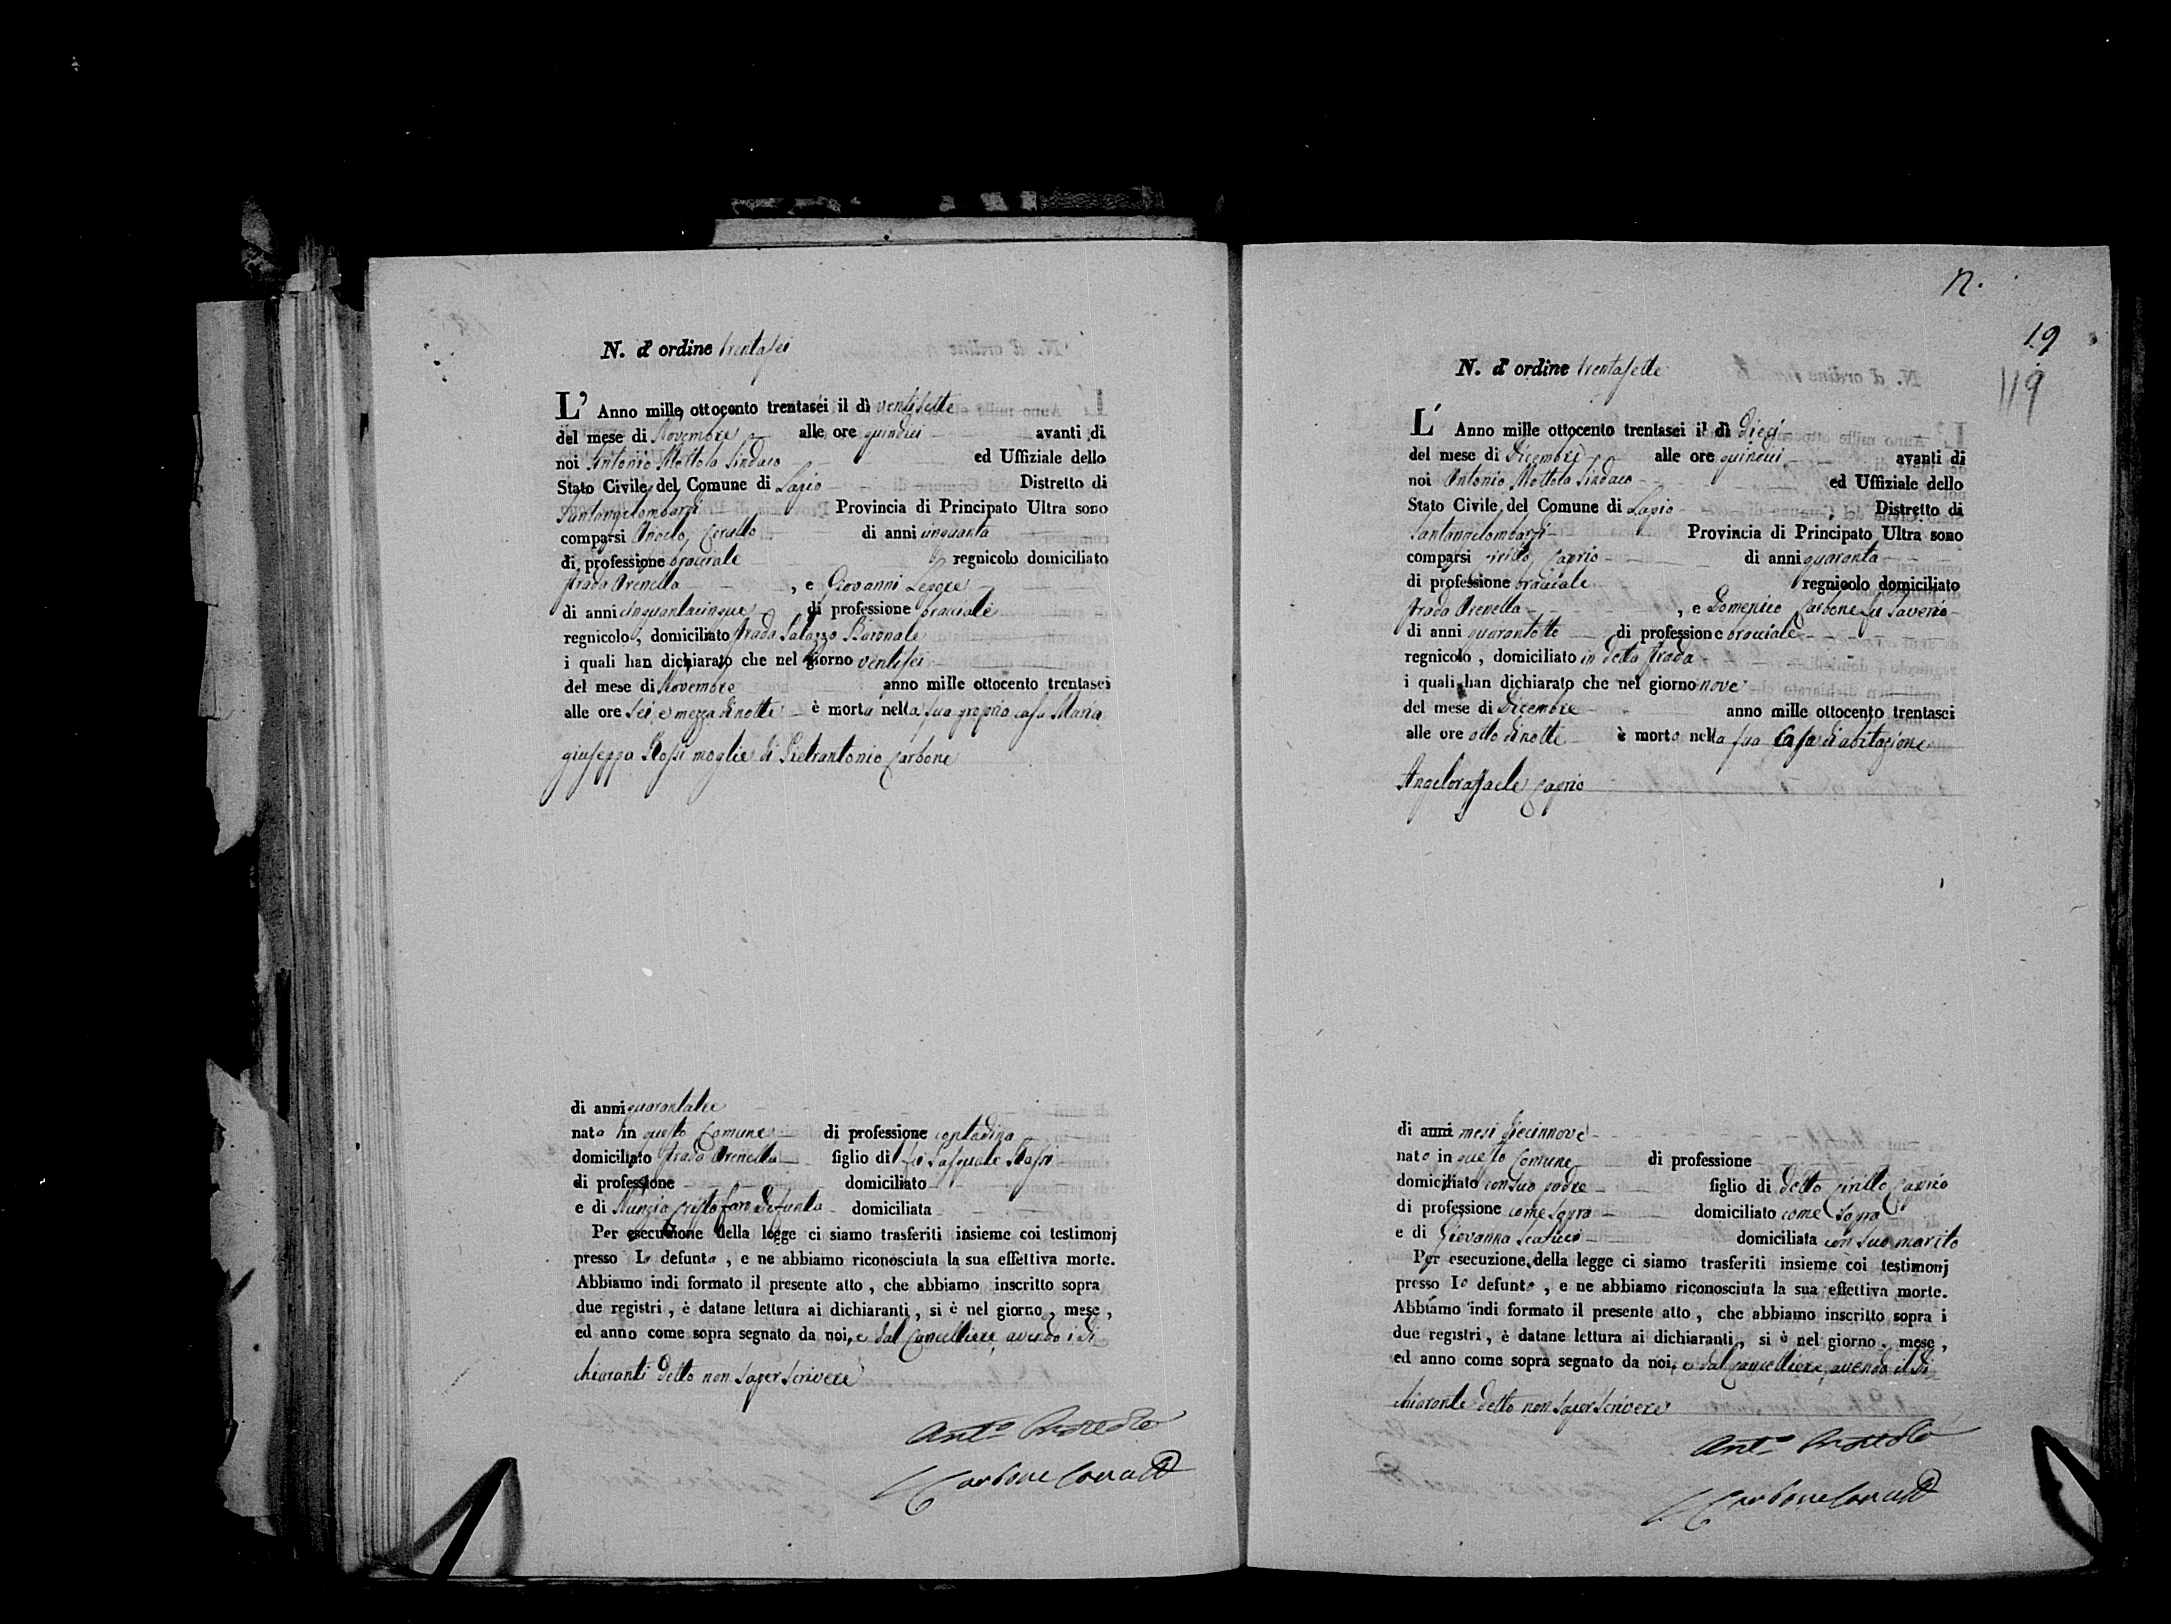 N. d'ordine trentasei
L' Anno mille ottocento trentasei il dì ventisette
del mese di Novembre alle ore quindici avanti di
noi Antonio Mottola Sindaco ed Uffiziale dello
Stato Civile del Comune di Lapio Distretto di
Santangelombardi Provincia di Principato Ultra sono
comparsi Angelo di anni cinquanta
di professione bracciale regnicolo domiciliato
strada Arenella, e Giovanni Lepore
di anni cinquantacinque di professione bracciale
regnicolo, domiciliato strada Palazzo Baronale
i quali han dichiarato che nel giorno ventisei
del mese di Novembre anno mille ottocento trentasei
alle ore sei e mezza di notte è morta nella sua propria casa Maria
giuseppa Rossi moglie di Pietrantonio Carbone
di anni quarantatre
nata in questo Comune di professione contadina
domiciliato strada Arenella figlio di fu Pasquale Rossi
di professione domiciliato
e di Nunzia Cristofaro defunta domiciliata
Per esecuzione della legge ci siamo trasferiti insieme coi testimonj
presso La defunta, e ne abbiamo riconosciuta la sua effettiva morte.
Abbiamo indi formato il presente atto, che abbiamo inscritto sopra
due registri, è datane lettura ai dichiaranti, si è nel giorno, mese,
ed anno come sopra segnato da noi, e dal Cancelliere, avendo i di
chiaranti detto non saper scrivere
Ant.o Mottola
Carbone
n.
19
119
N. d'ordine trentasette
L' Anno mille ottocento trentasei il dì dieci
del mese di Dicembre alle ore quindici avanti di
noi Antonio Mottola Sindaco ed Uffiziale dello
Stato Civile del Comune di Lapio Distretto di
Santangelombardi Provincia di Principato Ultra sono
comparsi Cirillo Caprio di anni quaranta
di professione bracciale regnicolo domiciliato
strada Arenella, e Domenico Carbone fu Saverio
di anni quarantotto di professione bracciale
regnicolo, domiciliato in detta strada
i quali han dichiarato che nel giorno nove
del mese di Dicembre anno mille ottocento trentasei
alle ore otto di notte è morto nella sua Casa di abitazione
Angeloraffaele Caprio
di anni mesi diecinnove
nato in questo Comune di professione
domiciliato con suo padre figlio di detto Cirillo Caprio
di professione come sopra domiciliato come sopra
e di Giovanna domiciliata con suo marito
Per esecuzione della legge ci siamo trasferiti insieme coi testimonj
presso lo defunto, e ne abbiamo riconosciuta la sua effettiva morte.
Abbiamo indi formato il presente atto, che abbiamo inscritto sopra i
due registri, è datane lettura ai dichiaranti, si è nel giorno, mese,
ed anno come sopra segnato da noi, e dal Cancelliere, avendo il di
chiarante detto non saper scrivere
Ant.o Mottola
Carbone